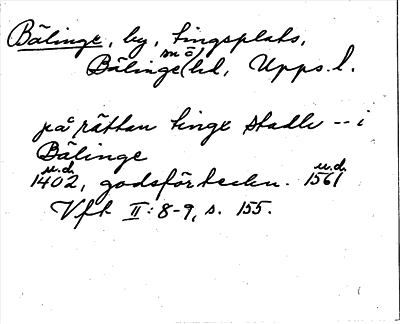 Bälinge, by, tingsplats,
Bälinge (små)hd, Upps. l.
på rättan tinge stadh -- i
Bälinge
u.d. u.d.
1402, godsförteckn. 1561
Vft II: 8-9, s. 155.